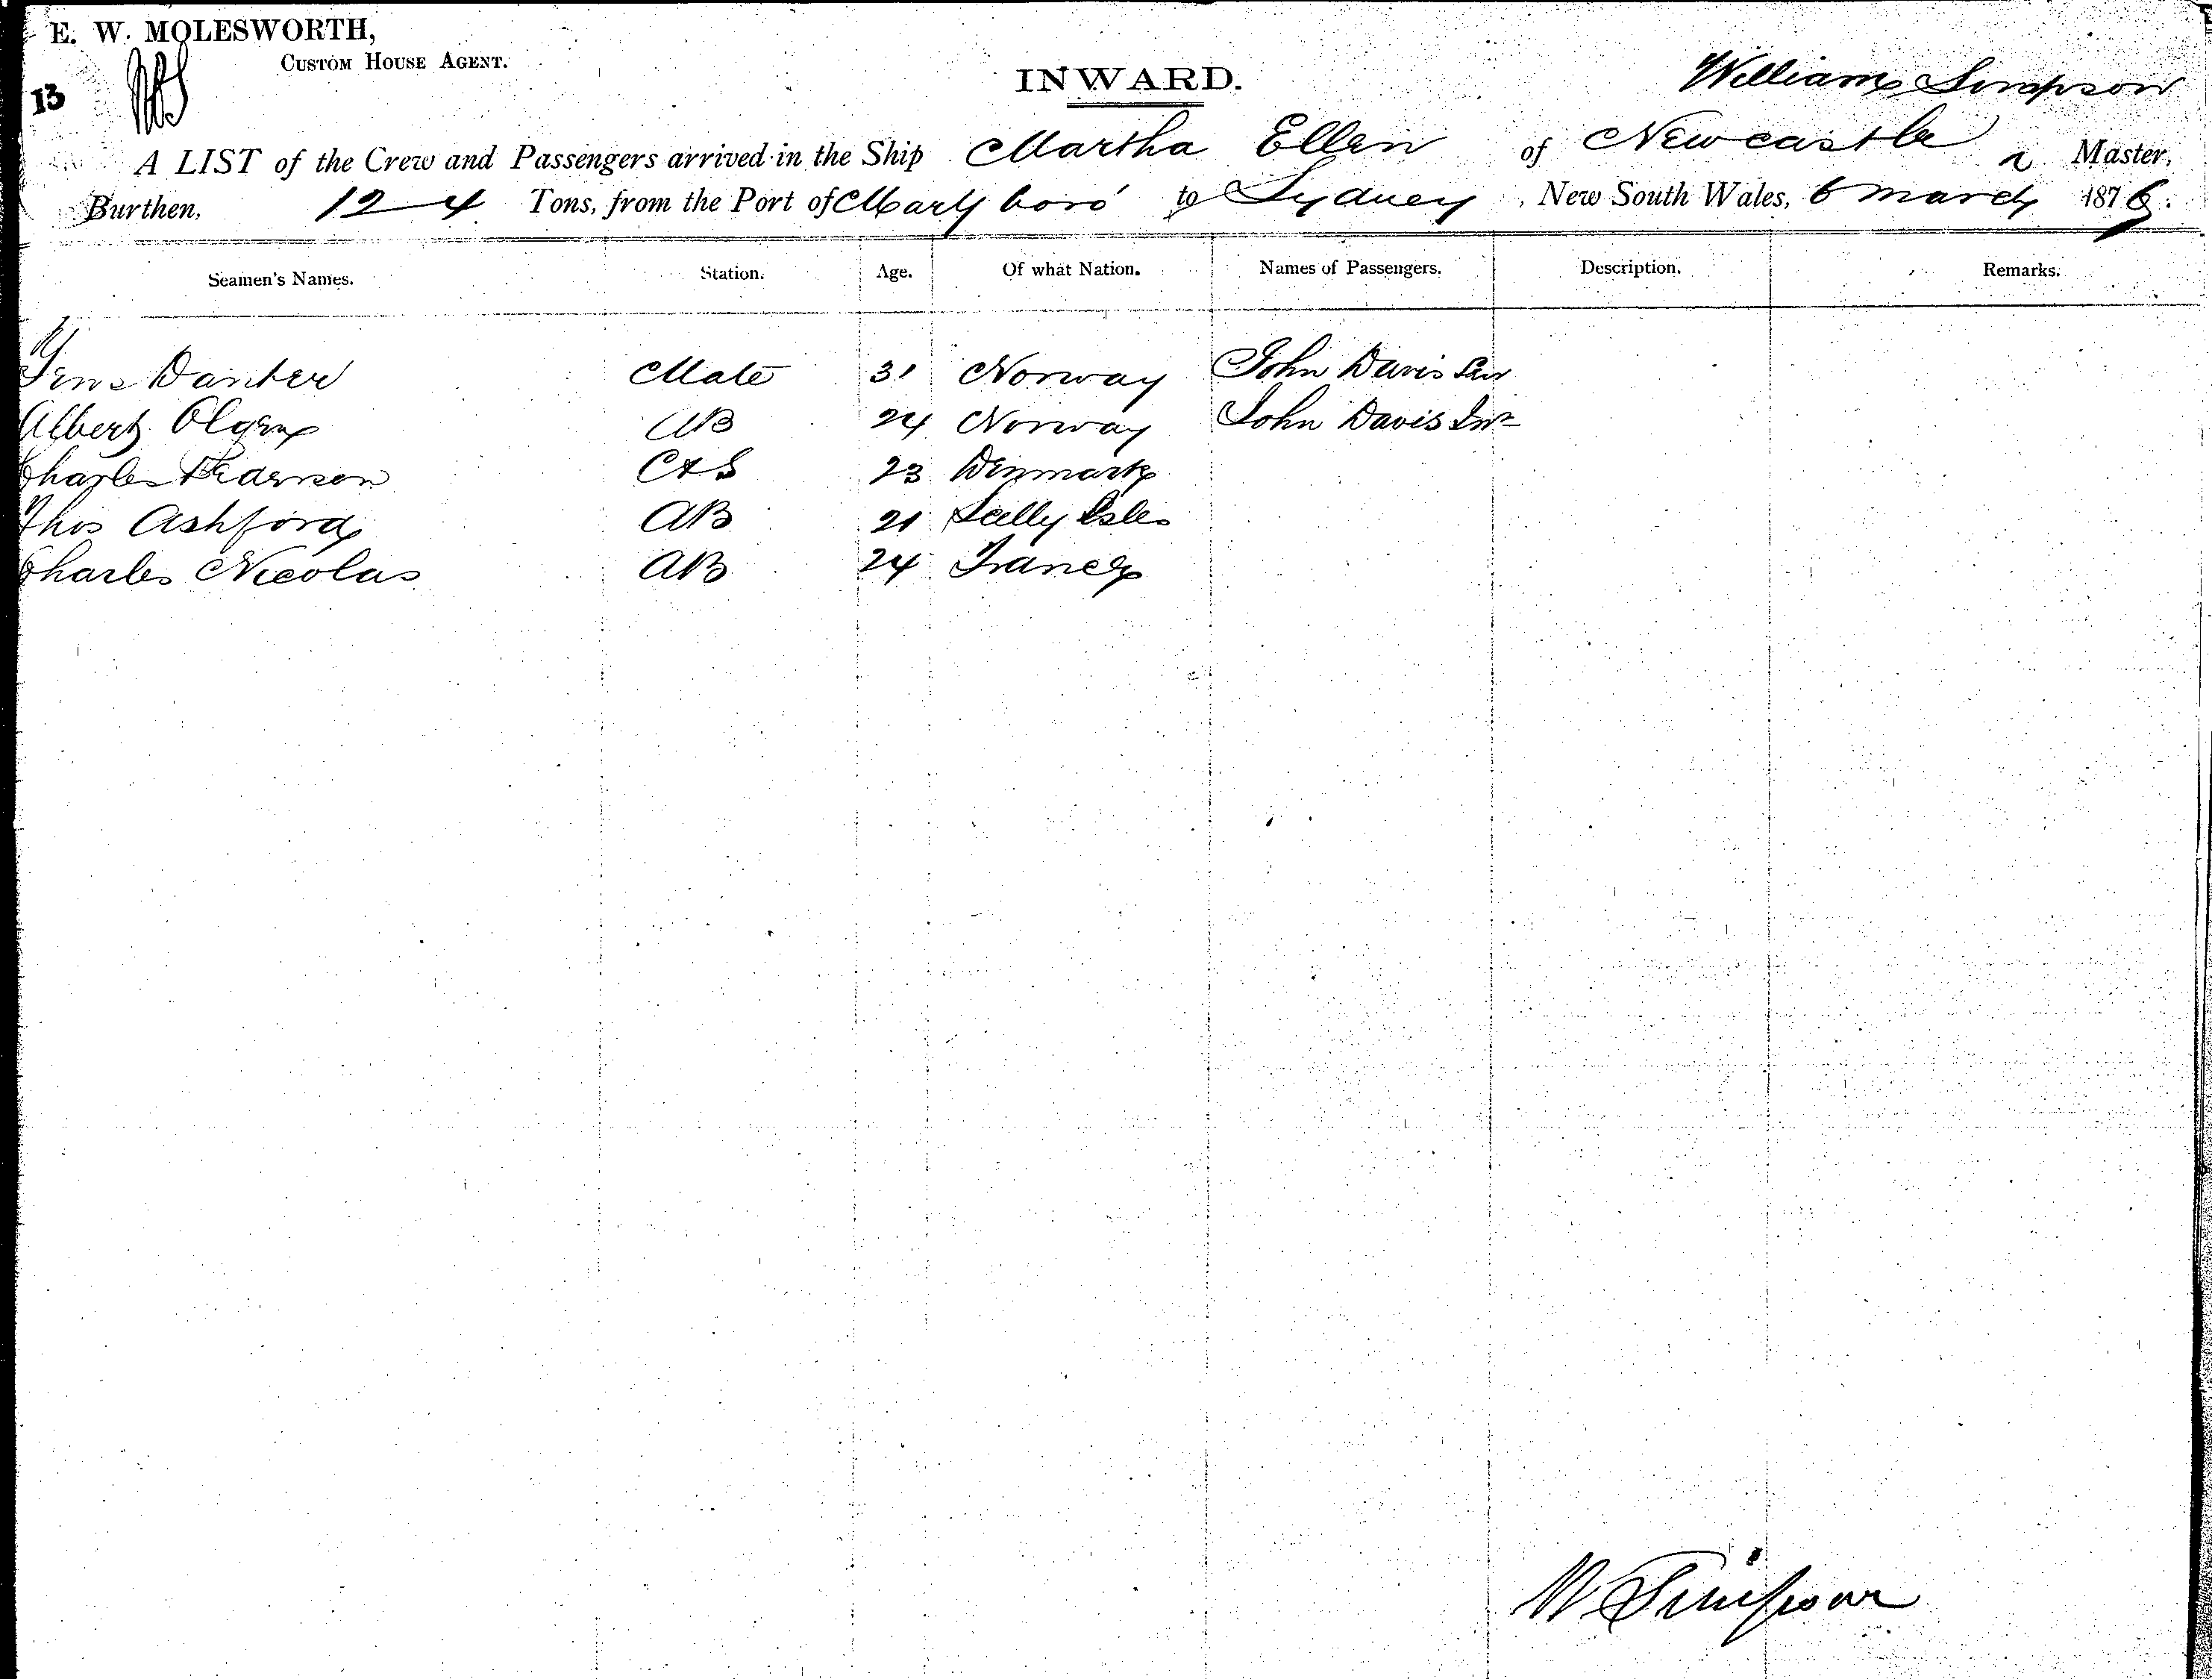 E. W. MOLESWORTH,
CUSTOM HOUSE AGENT.
13
INWARD.
William Simpson
A LIST of the Crew and Passengers arrived in the Ship Martha Ellen of Newcastle Master,
Burthen, 124 Tons, from the Port of Maryboro' to Sydney, New South Wales, 6 March 1876.
Seamen's Names. Station. Age. Of what Nation. Names of Passengers. Description. Remarks.
Mate 31 Norway John Davis Sen
Albert AB 24 Norway John Davis Jnr
Charles Pederson C&S 23 Denmark
Thos Ashford AB 21 Scilly Isles
Charles Nicolas AB 24 France
W Simpson